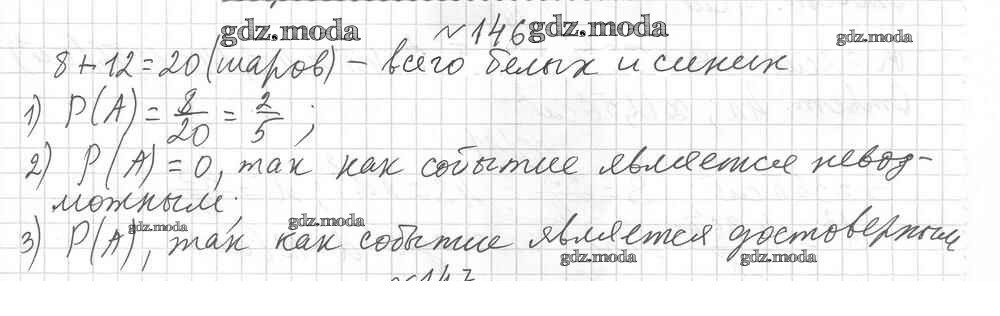 gdz.moda №146 gdz.moda gdz.moda
8+12=20 (шаров) – всего белых и синих
1) P(A) = 8/20 = 2/5 ;
2) P(A)=0, так как событие является невоз-
можным;
gdz.moda gdz.moda
3) P(A), так как событие является достоверным
gdz.moda gdz.moda
№147